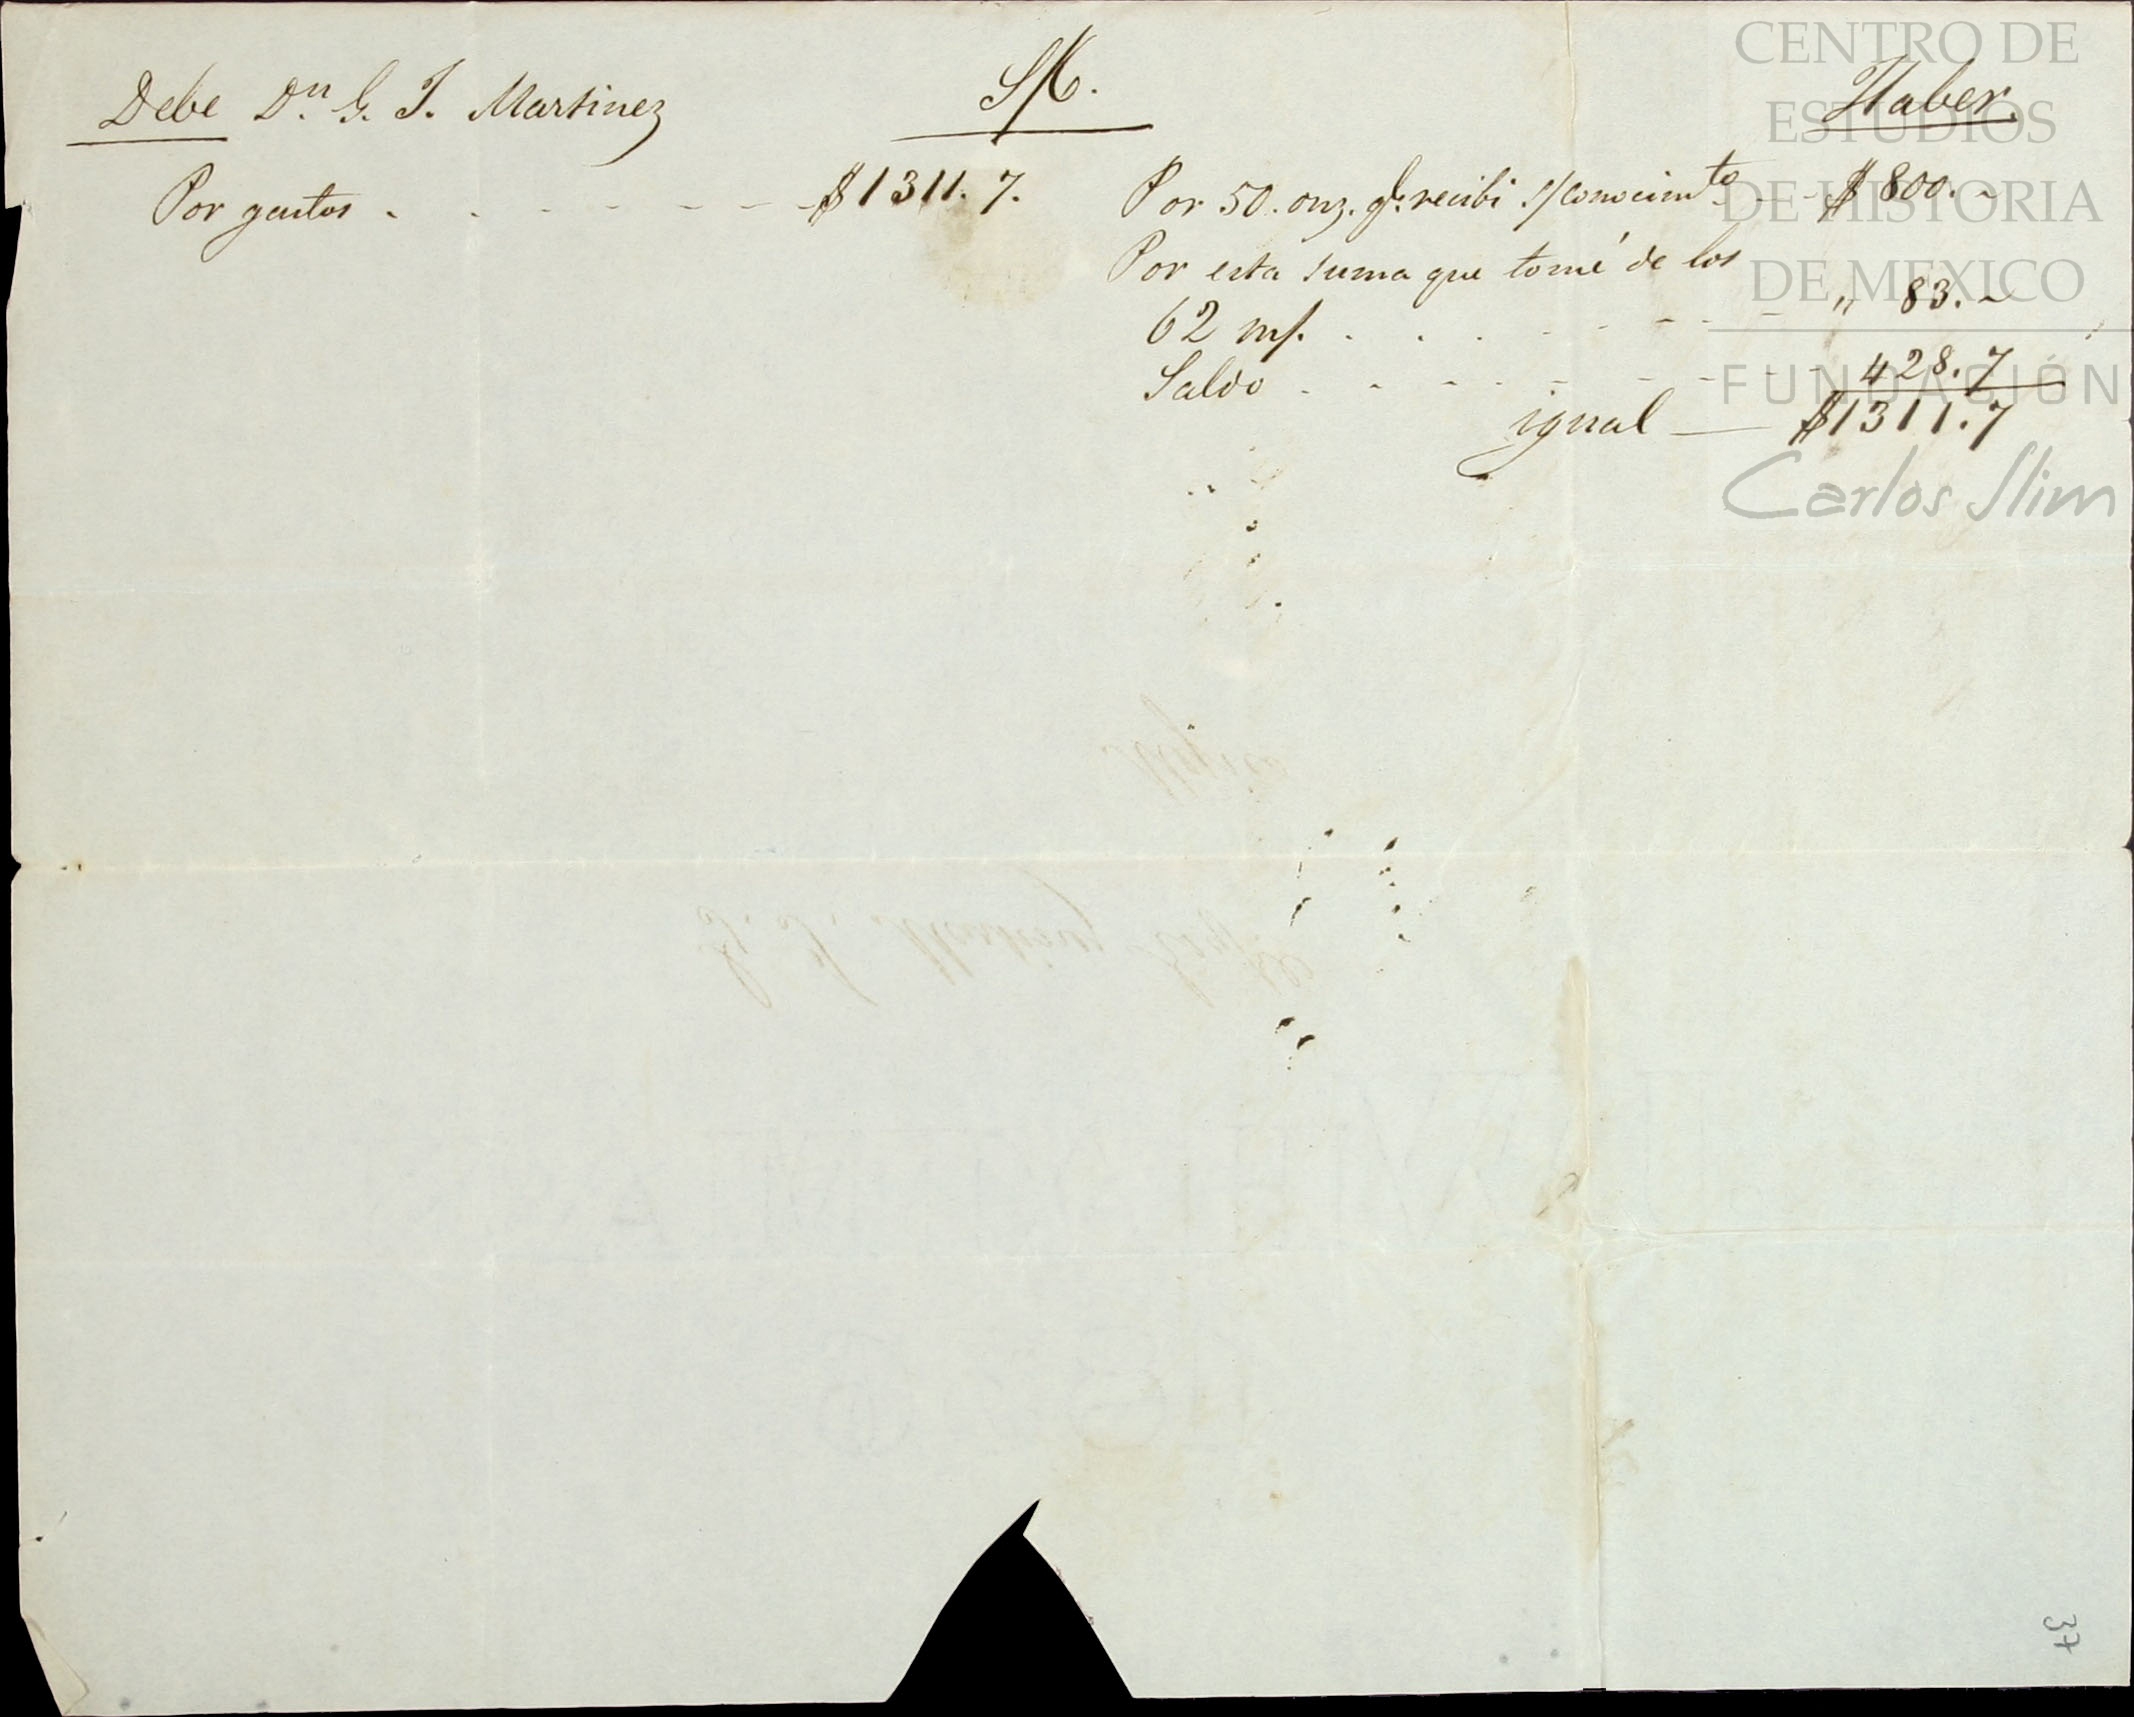 Debe Dn. G. J. Martinez
S/C.
Haber.
Por gastos . - - - - - - $1311.7.
Por 50. onz. q.e recibi s/ conocimto. - - $800. ~
Por esta suma que tomé de los
62 m/. . . . - - - - - " 83. ~
Saldo . - - - - - - - 428.7
igual — $1311.7
CENTRO DE
ESTUDIOS
DE HISTORIA
DE MEXICO
FUNDACIÓN
Carlos Slim
37